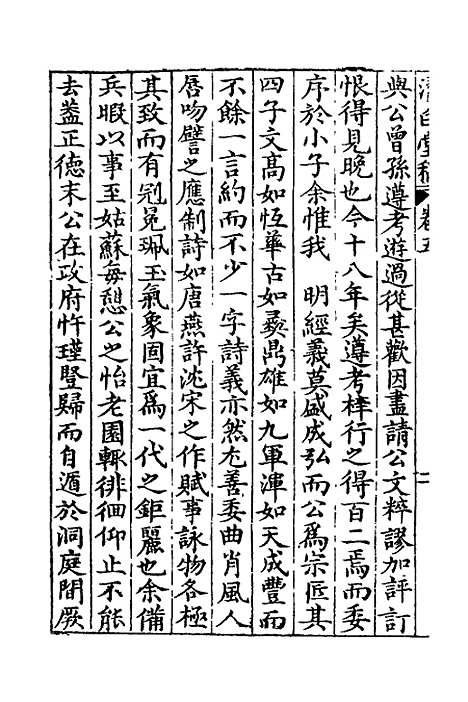 濟白堂稿 卷五 二
與公曾孫遵考遊過從甚歡因盡請公文粹謬加評訂
恨得見晚也今十八年矣遵考梓行之得百二焉而委
序於小子余惟我 明經義莫盛成弘而公爲宗匠其
四子文高如恆華古如彛鼎雄如九軍渾如天成豐而
不餘一言約而不少一字詩義亦然尤善委曲肖風人
唇吻譬之應制詩如唐燕許沈宋之作賦事詠物各極
其致而有冠冕珮玉氣象固宜爲一代之鉅麗也余備
兵暇以事至姑蘇每憩公之怡老園輒徘徊仰止不能
去葢正徳末公在政府忤瑾豎歸而自遁於洞庭間厥